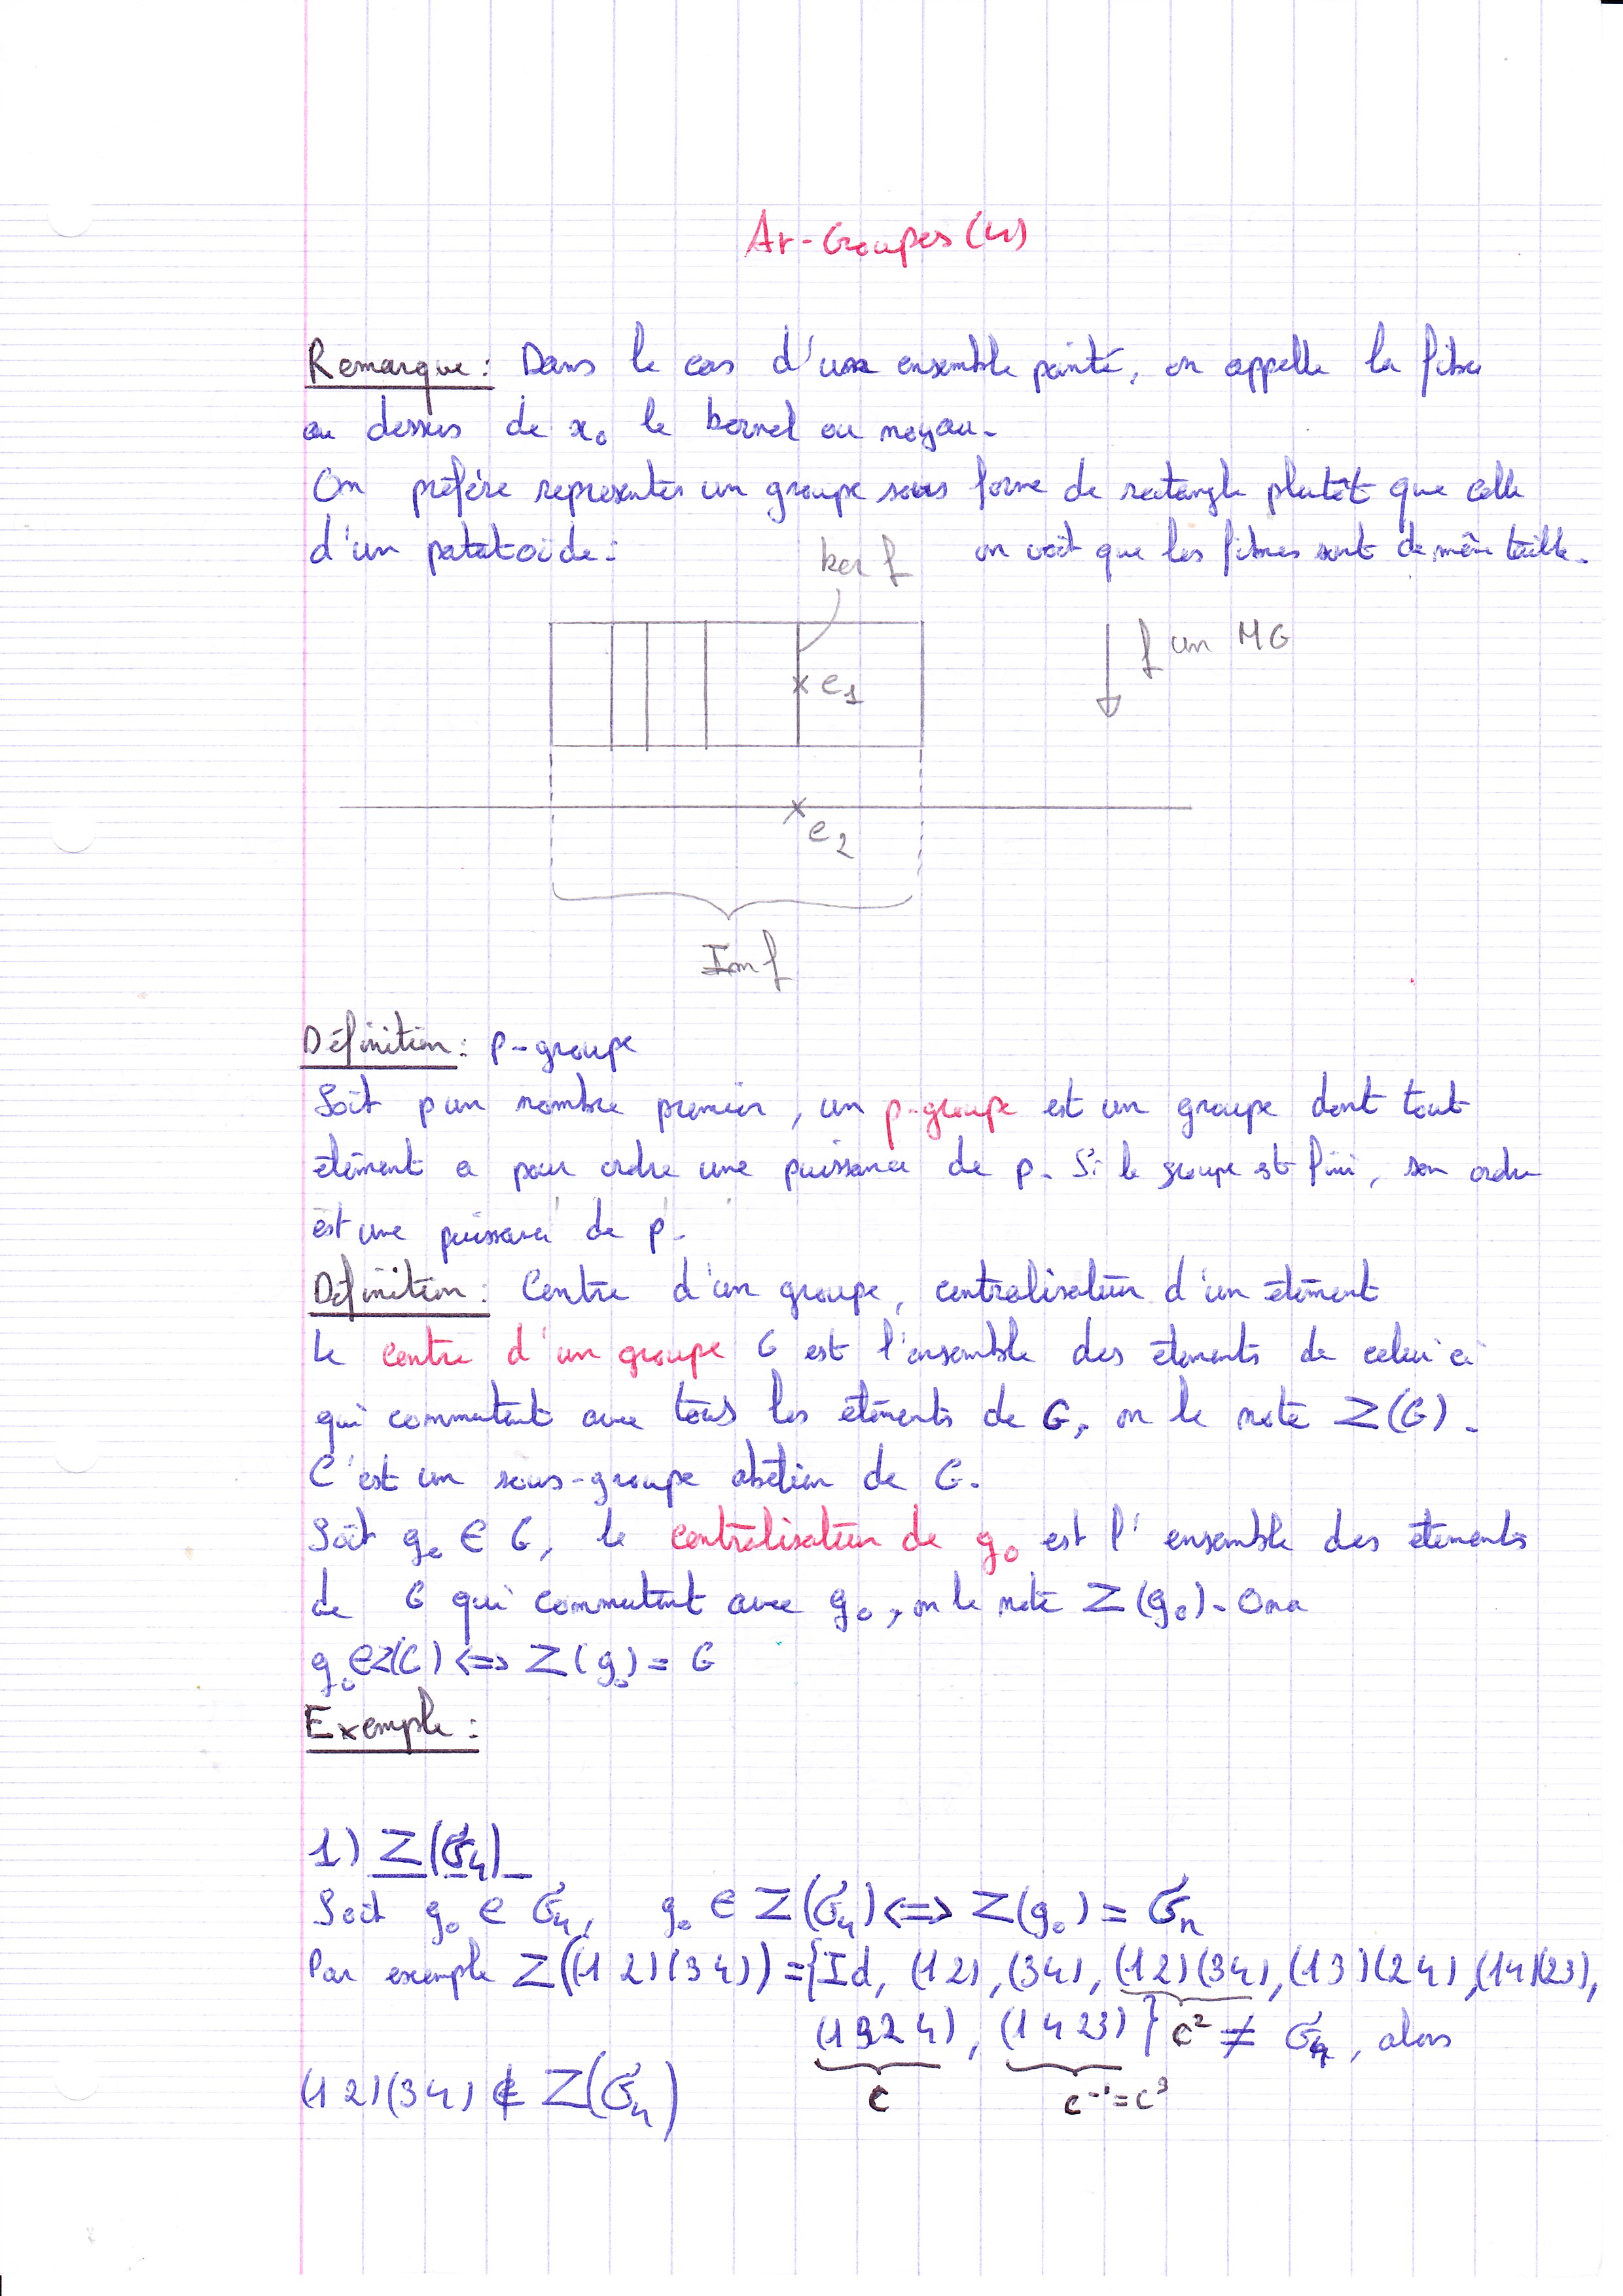 Ar-Groupes (4)
Remarque : Dans le cas d'un ensemble pointé, on appelle la fibre
au dessus de x₀ le kernel ou noyau.
On préfère représenter un groupe sous forme de rectangle plutôt que celle
d'un patatoïde : on voit que les fibres sont de même taille.
ker f
f un MG
e₁
e₂
Im f
Définition : p-groupe
Soit p un nombre premier, un p-groupe est un groupe dont tout
élément a pour ordre une puissance de p. Si le groupe est fini, son ordre
est une puissance de p.
Définition : Centre d'un groupe, centralisateur d'un élément
Le centre d'un groupe G est l'ensemble des éléments de celui ci
qui commutent avec tous les éléments de G, on le note Z(G).
C'est un sous-groupe abélien de G.
Soit g₀ ∈ G, le centralisateur de g₀ est l'ensemble des éléments
de G qui commutent avec g₀, on le note Z(g₀). On a
g₀ ∈ Z(G) <=> Z(g₀) = G
Exemple :
1) Z(σ₄)
Soit g₀ ∈ σ₄, g₀ ∈ Z(σ₄) <=> Z(g₀) = σ₄
Par exemple Z((1 2)(3 4)) = {Id, (12), (34), (12)(34), (13)(24), (14)(23),
(1324), (1423)} c² ≠ σ₄, alors
c c⁻¹ = c³
(12)(34) ∉ Z(σ₄)